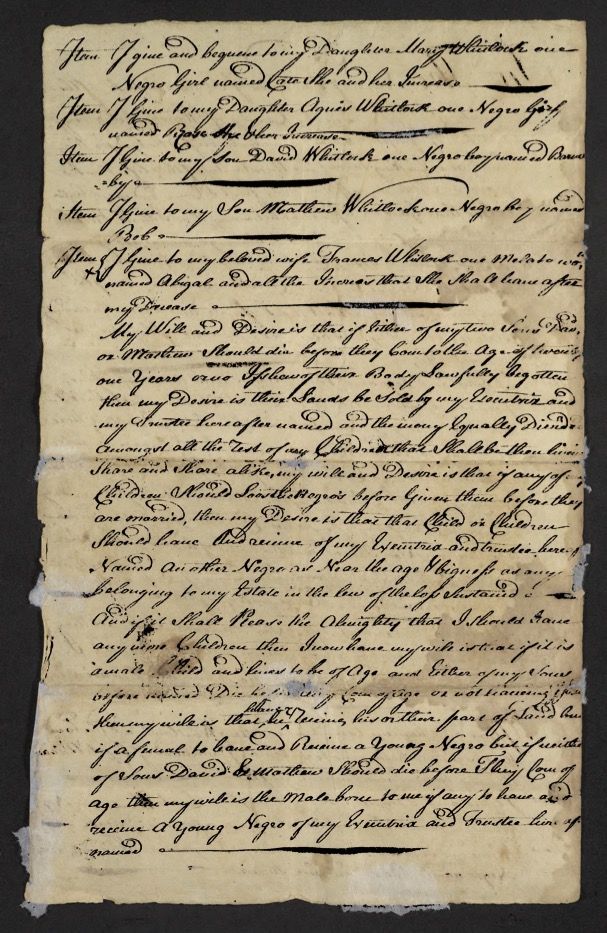 Item I give and bequeue to my Daughter Mary Whitlock one
Negro Girl named Cate She and her Increase
Item I Give to my Daughter Agnes Whitlock one Negro Girl
named her Increase
Item I Give to my Son David Whitlock one Negro boy named Barna
=by=
Item I Give to my Son Mathew Whitlock one Negro boy named
Bob
Item I Give to my beloved wife Frances Whitlock one Molato wo
named Abigal and all the Increas that She Shall have after
my Decease
My Will and Desire is that if Either of my two Sons Davi
or Mathew Should die before they Com to the Age of twenty
one Years or no Isshew of their Body Lawfully begotten
then my Desire is their Lands be Sold by my Exeutrix and
my Trustee hereafter named and the mony Equally Divided
amongst all the rest of my Children that Shall be then living
Share and Share alike, my will and Desire is that if any of
Children Should Loos the Negros before Given them before they
are married, then my Desire is that that Child or Children
Should have and recive of my Exeutrix and trustee here
Named an other Negro as Near the age & bigness as any
belonging to my Estate in the lew of the loss Sustaind
And if it Shall Please the Almighty that I Should have
any more Children then I now have my wile is that if it is
a male Child and lives to be of Age and Either of my Sons
before named Die before they Com of age or not having
then my wile is that he having receive his or their part of Land but
if a femal to have and Receive a Young Negro but if neither
of Sons David & Mathew Should die before They Com of
age then my wile is the Male born to me if any to have and
receive a Young Negro of my Exeutrix and Trustee here af
named